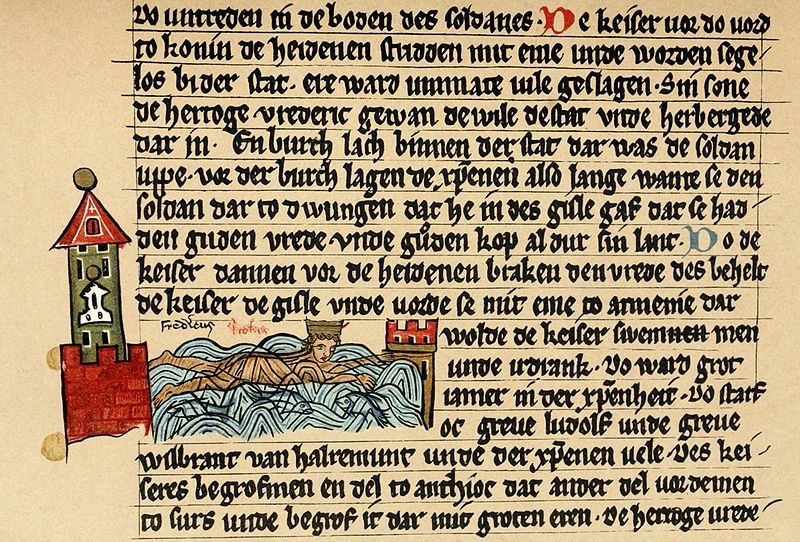 vo untreden in de boden des soldanes. De keiser vor do vord
to konin de heidenen stridden mit eme unde worden sege-
los bi der stat. ere ward ummate vile geslagen. Sin sone
de hertoge vrederic gewan de wile de stat unde herbergede
dar in. En burch lach binnen der stat dar was de soldan
uppe. vor der burch lagen de xp̄enen also lange wante se den
soldan dar to dwungen dat he in des gisle gaf dat se had
den guden vrede unde guͦden kop al dur sin lant. Do de
keiser dannen vor de heidenen braken den vrede des behelt
de keiser de gisle unde vorde se mit eme to armenie dar
Fredicus
wolde de keiser swemmen
unde irdrank. Do ward grot
iamer in der xp̄enheit. Do starf
oc greve ludolf unde greve
wilbrant van halremunt unde der xp̄enen vele. Des kei-
seres begrof men en del to anthioc dat ander del vor de men
to surs unde begrof it dar mit groten eren. De hertoge vrede-